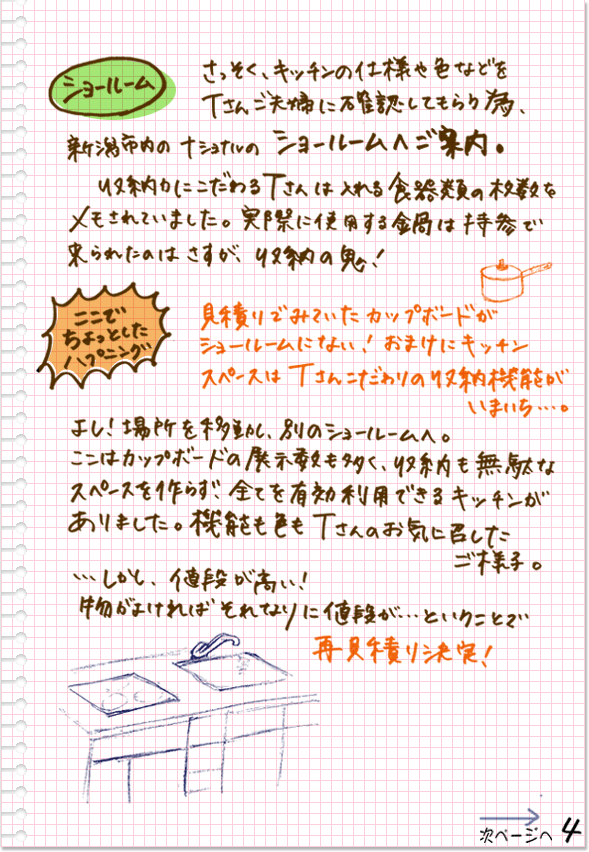 ショールーム
さっそく、キッチンの仕様や色などを
Tさんご夫婦に確認してもらう為、
新潟市内のナショナルの ショールームへご案内。
収納力にこだわるTさんは入れる食器類の枚数を
メモされていました。実際に使用する金局は持参で
来られたのはさすが、収納の鬼!
ここで
ちょっとした
ハプニング
見積りでみていたカップボードが
ショールームにない!おまけにキッチン
スペースはTさんこだわりの収納機能が
いまいち…。
よし!場所を移動し、別のショールームへ。
ここはカップボードの展示数も多く、収納も無駄な
スペースを作らず、全てを有効利用できるキッチンが
ありました。機能も色もTさんのお気に召した
ご様子。
…しかし、値段が高い!
物がよければそれなりに値段が…ということで
再見積り決定!
次ページへ 4